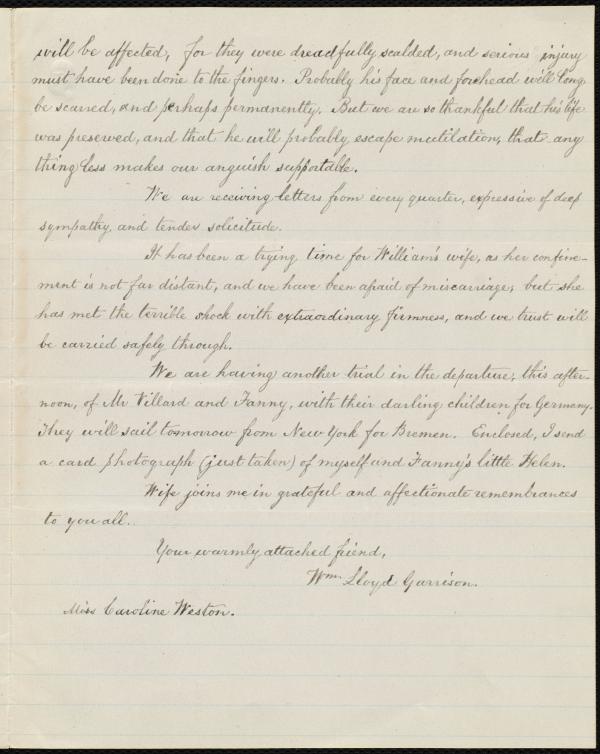 will be affected, for they were dreadfully scalded, and serious injury
must have been done to the fingers. Probably his face and forehead will long
be scarred, and perhaps permanently. But we are so thankful that his life
was preserved, and that he will probably escape mutilation, that any
thing less makes our anguish supportable.
We are receiving letters from every quarter, expressive of deep
sympathy and tender solicitude.
It has been a trying time for William's wife, as her confine-
ment is not far distant, and we have been afraid of miscarriage; but she
has met the terrible shock with extraordinary firmness, and we trust will
be carried safely through.
We are having another trial in the departure, this after-
noon, of Mr Villard and Fanny, with their darling children for Germany.
They will sail tomorrow from New York for Bremen. Enclosed, I send
a card photograph (just taken) of myself and Fanny's little Helen.
Wife joins me in grateful and affectionate remembrances
to you all.
Your warmly attached friend,
Wm. Lloyd Garrison.
Miss Caroline Weston.